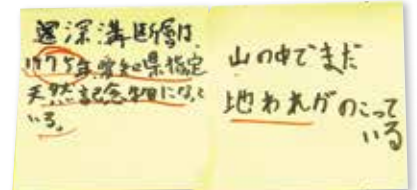 深溝断層は、
1975年愛知県指定
天然記念物になって
いる。
山の中でまだ
地われがのこって
いる